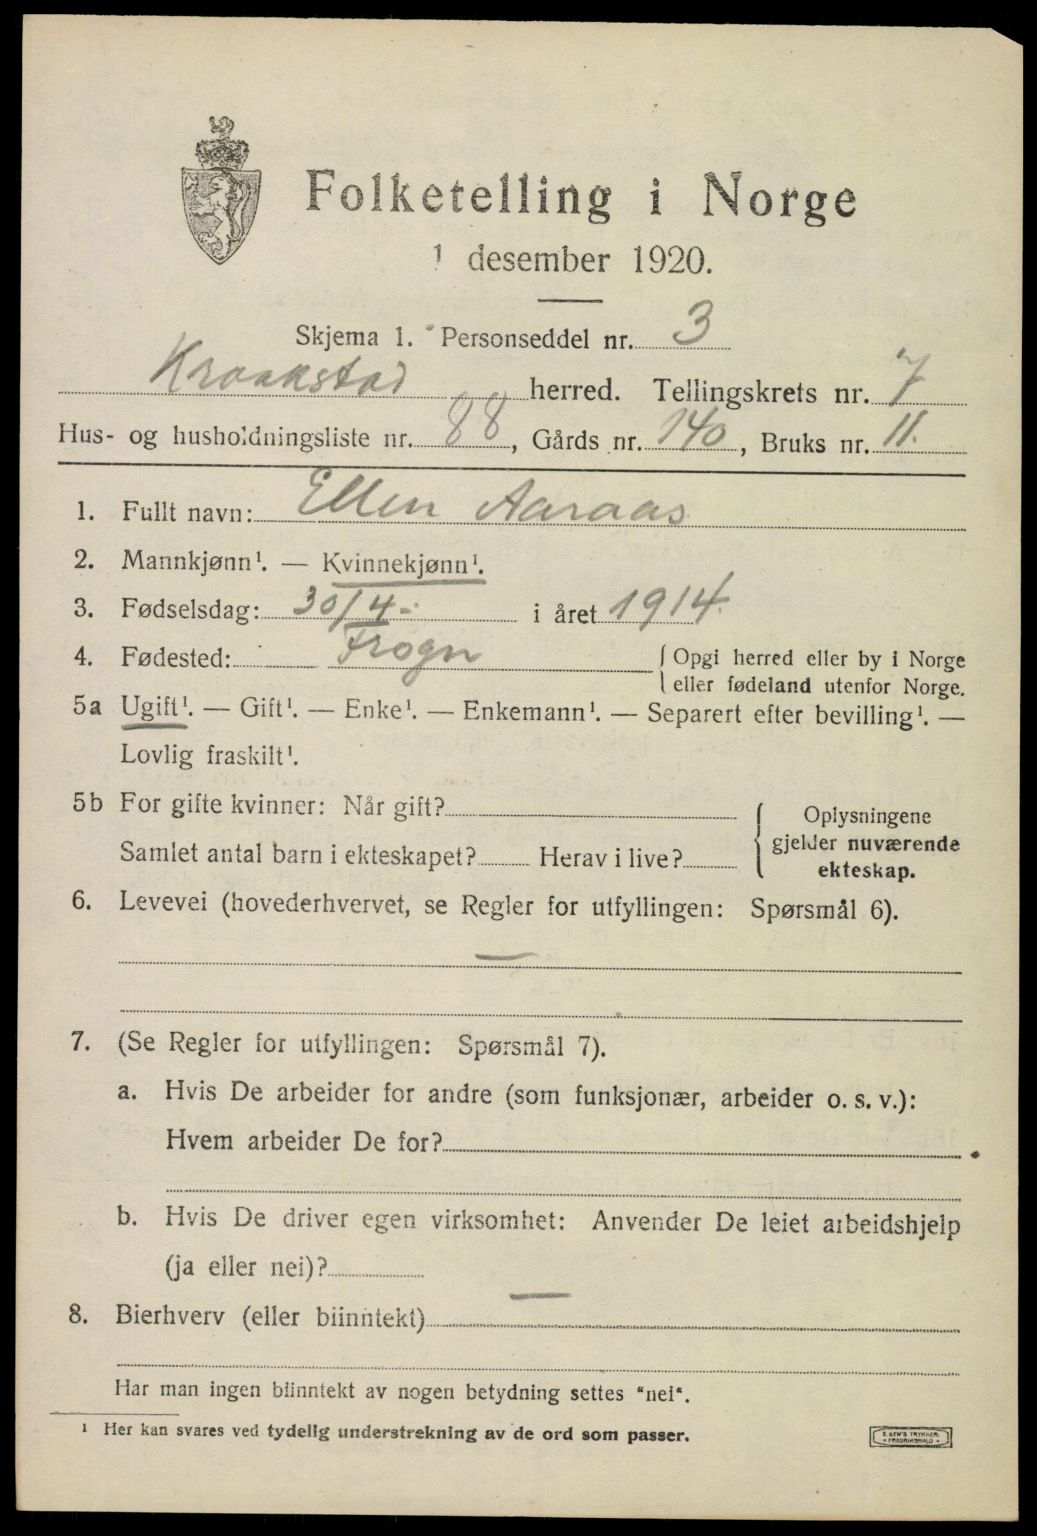 Folketelling i Norge
1 desember 1920.
Skjema 1. Personseddel nr. 3
Kraakstad herred. Tellingskrets nr. 7
Hus- og husholdningsliste nr. 88, Gårds nr. 140, Bruks nr. 11.
1. Fullt navn: Ellen Aaraas
2. Mannkjønn¹. — Kvinnekjønn¹.
3. Fødselsdag: 30/4- i året 1914.
4. Fødested: Frogn
{ Opgi herred eller by i Norge
eller fødeland utenfor Norge.
5a Ugift¹. — Gift¹. — Enke¹. — Enkemann¹. — Separert efter bevilling¹. —
Lovlig fraskilt¹.
5b For gifte kvinner: Når gift?
Samlet antal barn i ekteskapet? Herav i live?
{ Oplysningene
gjelder nuværende
ekteskap.
6. Levevei (hovederhvervet, se Regler for utfyllingen: Spørsmål 6).
—
7. (Se Regler for utfyllingen: Spørsmål 7).
a. Hvis De arbeider for andre (som funksjonær, arbeider o. s. v.):
Hvem arbeider De for?
b. Hvis De driver egen virksomhet: Anvender De leiet arbeidshjelp
(ja eller nei)?
8. Bierhverv (eller biinntekt) —
Har man ingen biinntekt av nogen betydning settes "nei".
¹ Her kan svares ved tydelig understrekning av de ord som passer.
E. SEM'S TRYKKERI
FREDRIKSHALD